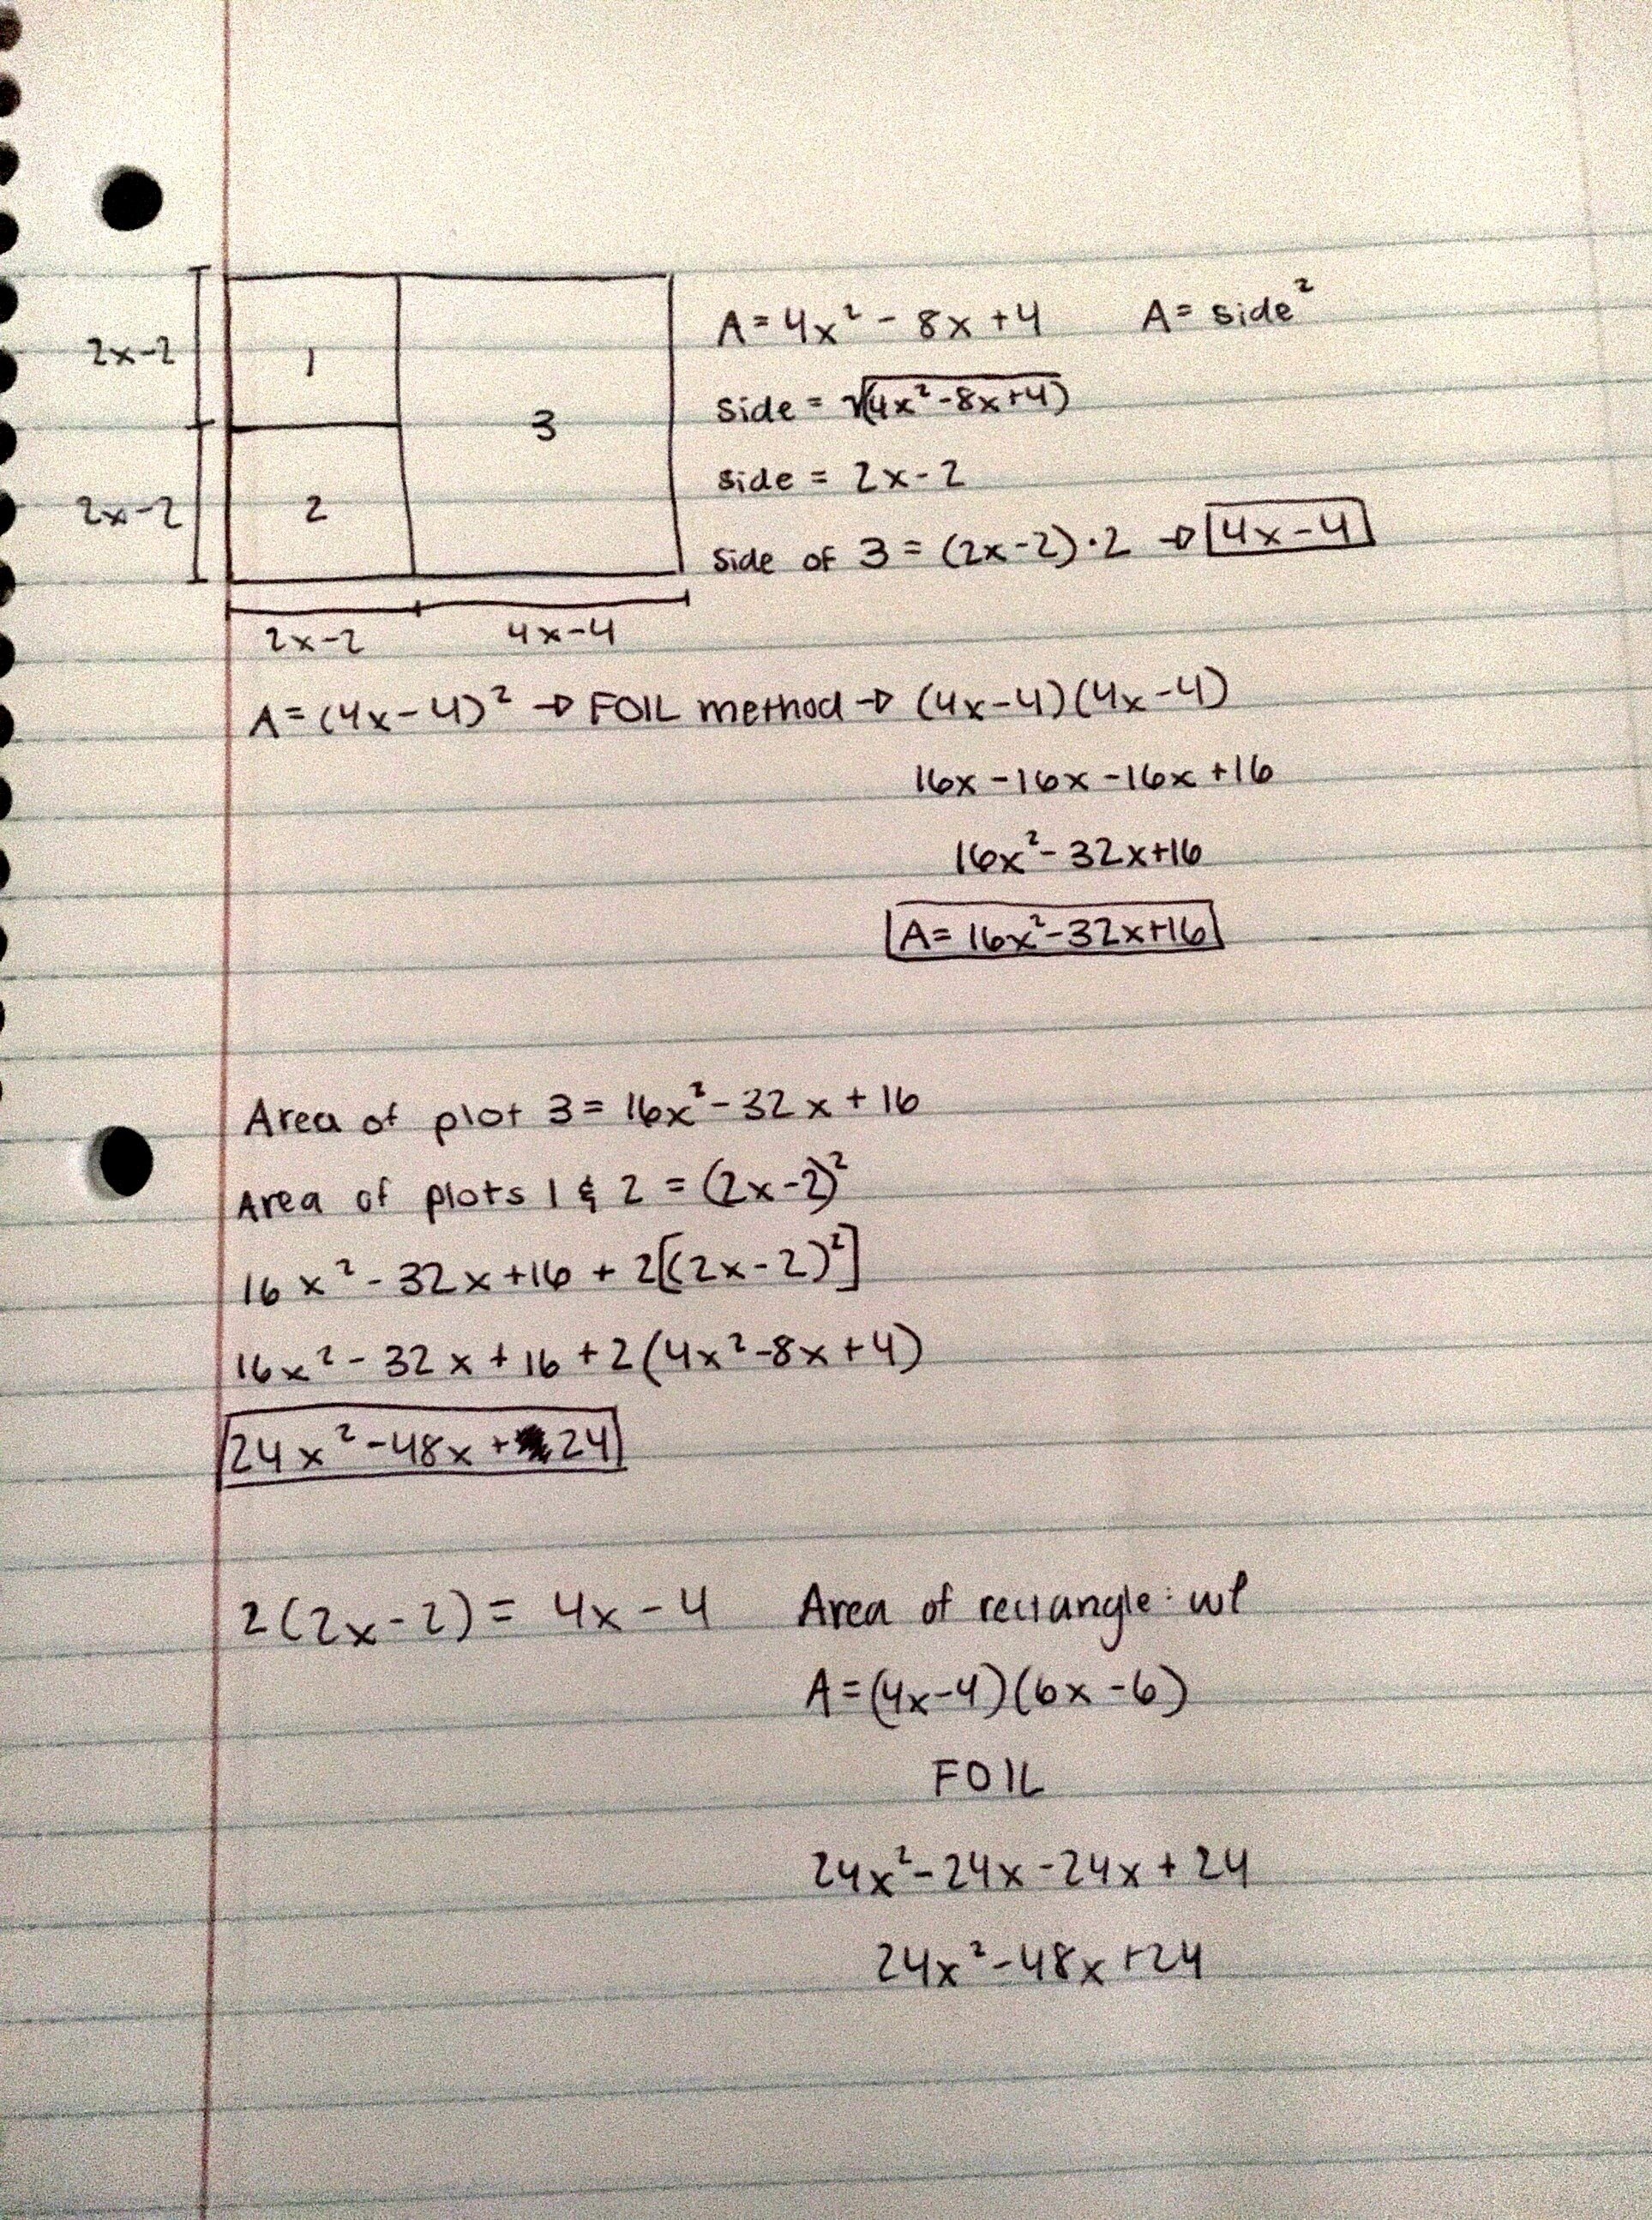 2x-2
1
2x-2
2
3
2x-2
4x-4
A=4x²-8x+4 A=side²
side=√(4x²-8x+4)
side=2x-2
side of 3=(2x-2)·2→4x-4
A=(4x-4)²→FOIL method→(4x-4)(4x-4)
16x-16x-16x+16
16x²-32x+16
A=16x²-32x+16
Area of plot 3=16x²-32x+16
Area of plots 1 & 2=(2x-2)²
16x²-32x+16+2[(2x-2)²]
16x²-32x+16+2(4x²-8x+4)
24x²-48x+24
2(2x-2)=4x-4 Area of rectangle: wl
A=(4x-4)(6x-6)
FOIL
24x²-24x-24x+24
24x²-48x+24